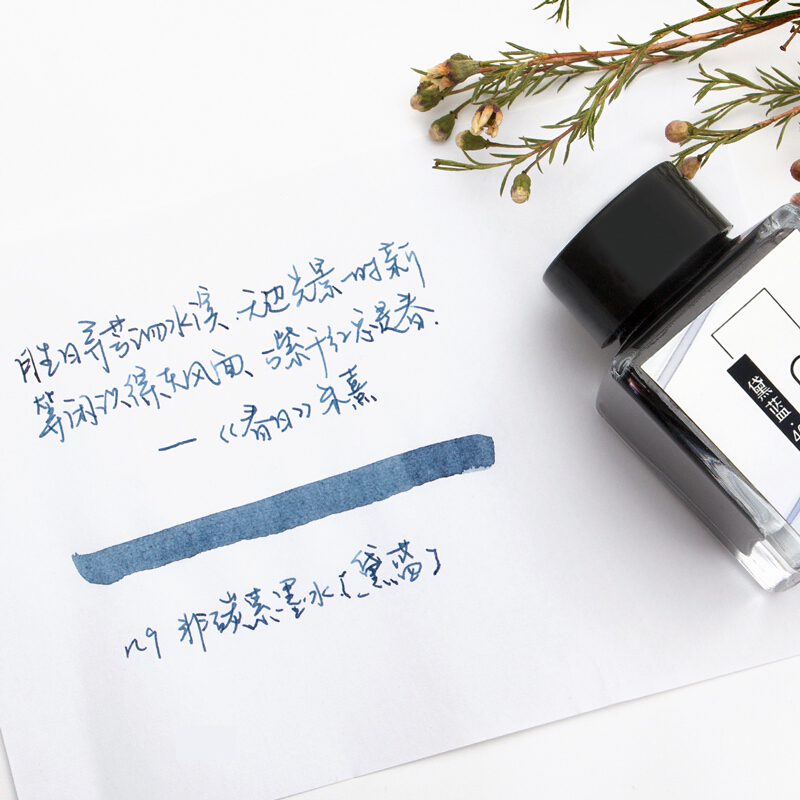 胜日寻芳泗水滨、无边光景一时新
等闲识得东风面、万紫千红总是春.
—《春日》朱熹
n9 非碳素墨水「黛蓝」
黛蓝·